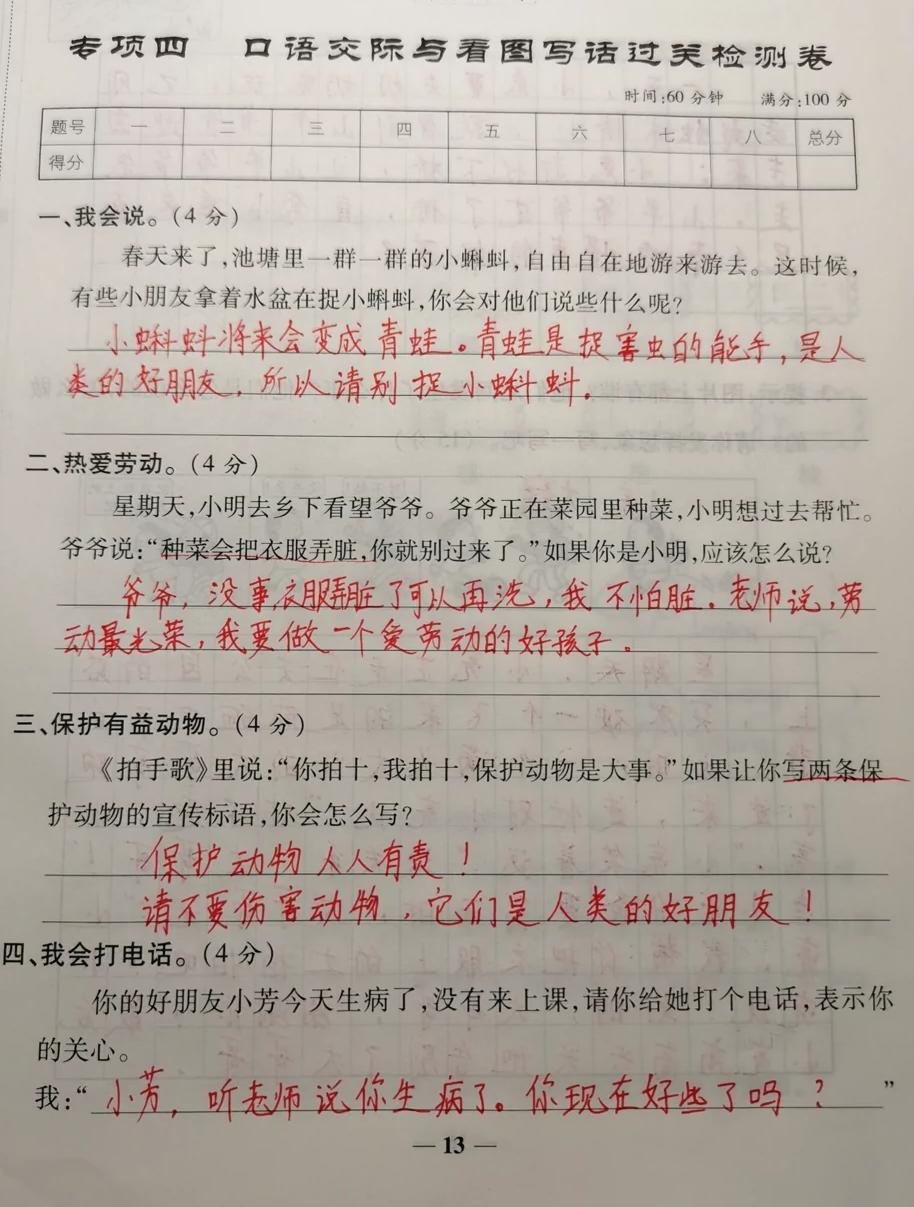 专项四 口语交际与看图写话过关检测卷
时间:60分钟 满分:100分
题号 一 二 三 四 五 六 七 八 总分
得分
一、我会说。(4分)
春天来了,池塘里一群一群的小蝌蚪,自由自在地游来游去。这时候,
有些小朋友拿着水盆在捉小蝌蚪,你会对他们说些什么呢?
小蝌蚪将来会变成青蛙。青蛙是捉害虫的能手,是人
类的好朋友,所以请别捉小蝌蚪。
二、热爱劳动。(4分)
星期天,小明去乡下看望爷爷。爷爷正在菜园里种菜,小明想过去帮忙。
爷爷说:“种菜会把衣服弄脏,你就别过来了。”如果你是小明,应该怎么说?
爷爷,没事衣服弄脏了可以再洗,我不怕脏。老师说,劳
动最光荣,我要做一个爱劳动的好孩子。
三、保护有益动物。(4分)
《拍手歌》里说:“你拍十,我拍十,保护动物是大事。”如果让你写两条保
护动物的宣传标语,你会怎么写?
保护动物人人有责!
请不要伤害动物,它们是人类的好朋友!
四、我会打电话。(4分)
你的好朋友小芳今天生病了,没有来上课,请你给她打个电话,表示你
的关心。
我:“小芳,听老师说你生病了。你现在好些了吗?”
— 13 —